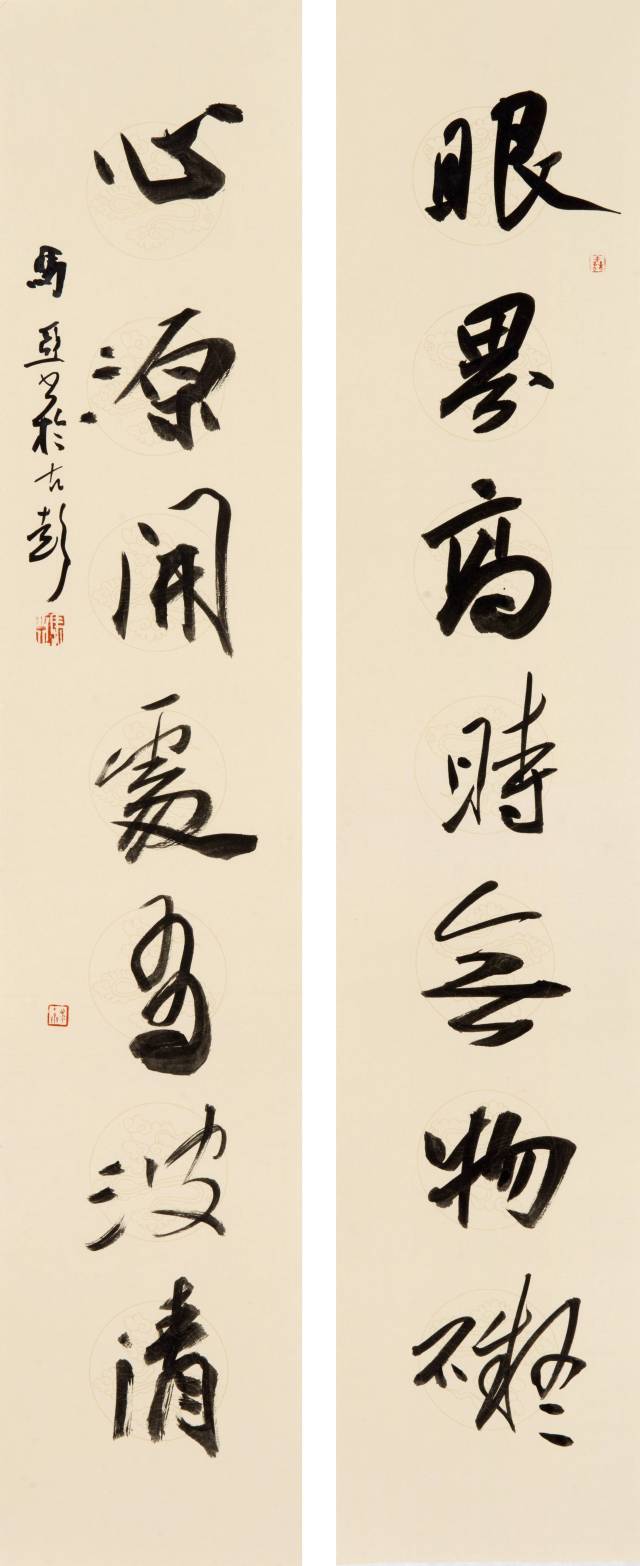 眼界高時無物礙
心源開處有波清
馬亞書於古彭